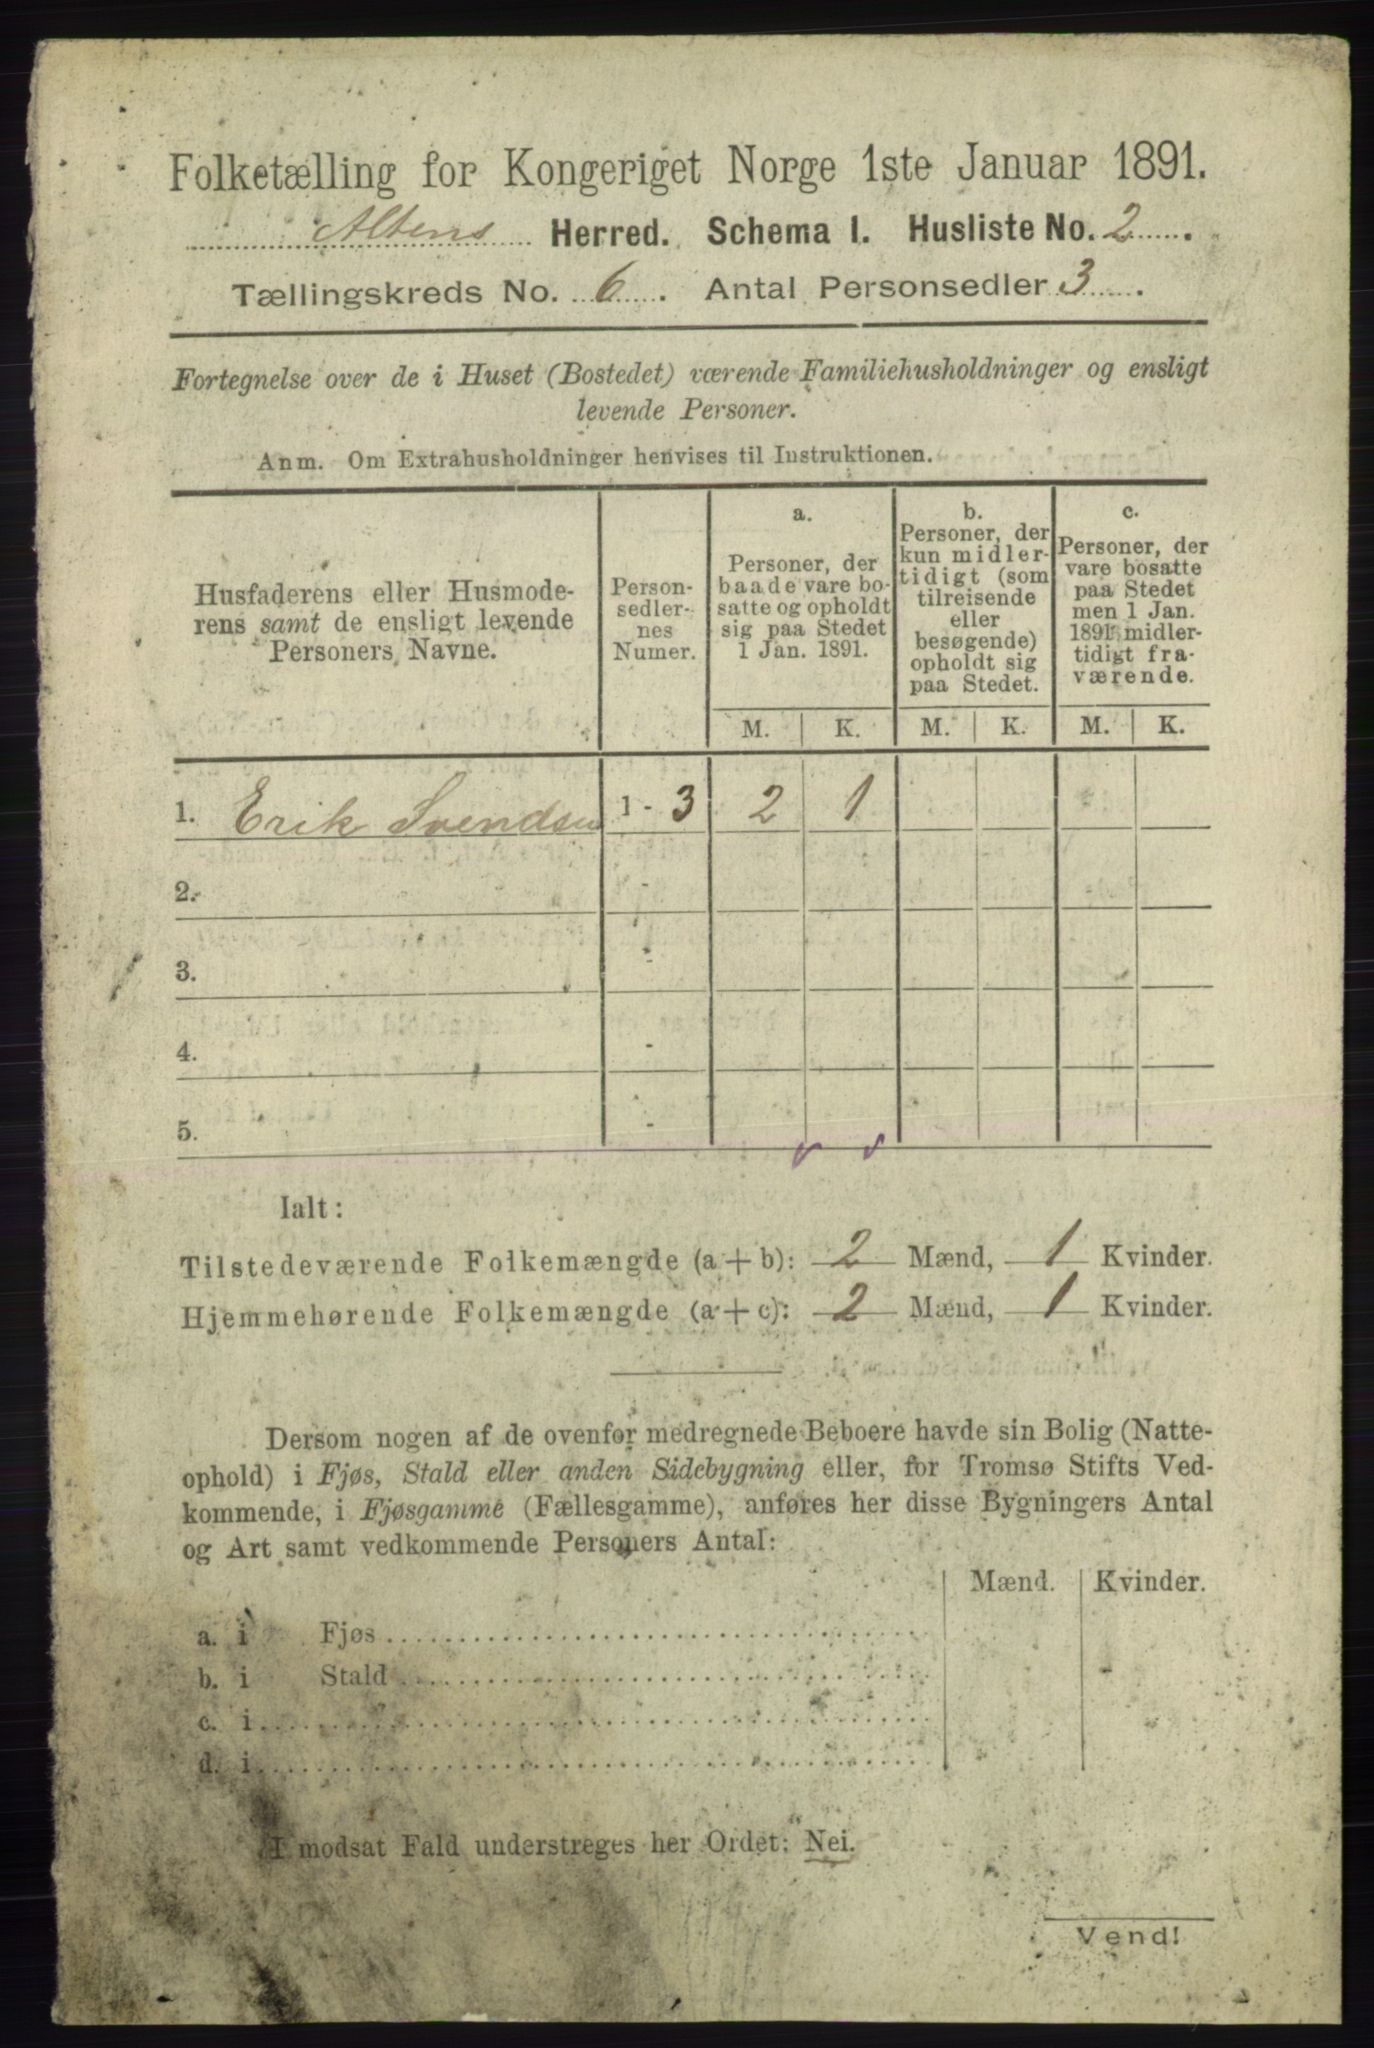 Folketælling for Kongeriget Norge 1ste Januar 1891.
Altens Herred. Schema I. Husliste No. 2.
Tællingskreds No. 6. Antal Personsedler 3.
Fortegnelse over de i Huset (Bostedet) værende Familiehusholdninger og ensligt
levende Personer.
Anm. Om Extrahusholdninger henvises til Instruktionen.
Husfaderens eller Husmode-
rens samt de ensligt levende
Personers Navne.
Person-
sedler-
nes
Numer.
a.
Personer, der
baade vare bo-
satte og opholdt
sig paa Stedet
1 Jan. 1891.
b.
Personer, der
kun midler-
tidigt (som
tilreisende
eller
besøgende)
opholdt sig
paa Stedet.
c.
Personer, der
vare bosatte
paa Stedet
men 1 Jan.
1891 midler-
tidigt fra-
værende.
M. K. M. K. M. K.
1. Erik Svendsen 1 - 3 2 1
2. -
3. -
4. -
5. -
Ialt:
Tilstedeværende Folkemængde (a + b): 2 Mænd, 1 Kvinder.
Hjemmehørende Folkemængde (a + c): 2 Mænd, 1 Kvinder.
Dersom nogen af de ovenfor medregnede Beboere havde sin Bolig (Natte-
ophold) i Fjøs, Stald eller anden Sidebygning eller, for Tromsø Stifts Ved-
kommende, i Fjøsgamme (Fællesgamme), anføres her disse Bygningers Antal
og Art samt vedkommende Personers Antal:
Mænd. Kvinder.
a. i Fjøs
b. i Stald
c. i
d. i
I modsat Fald understreges her Ordet: Nei.
Vend!